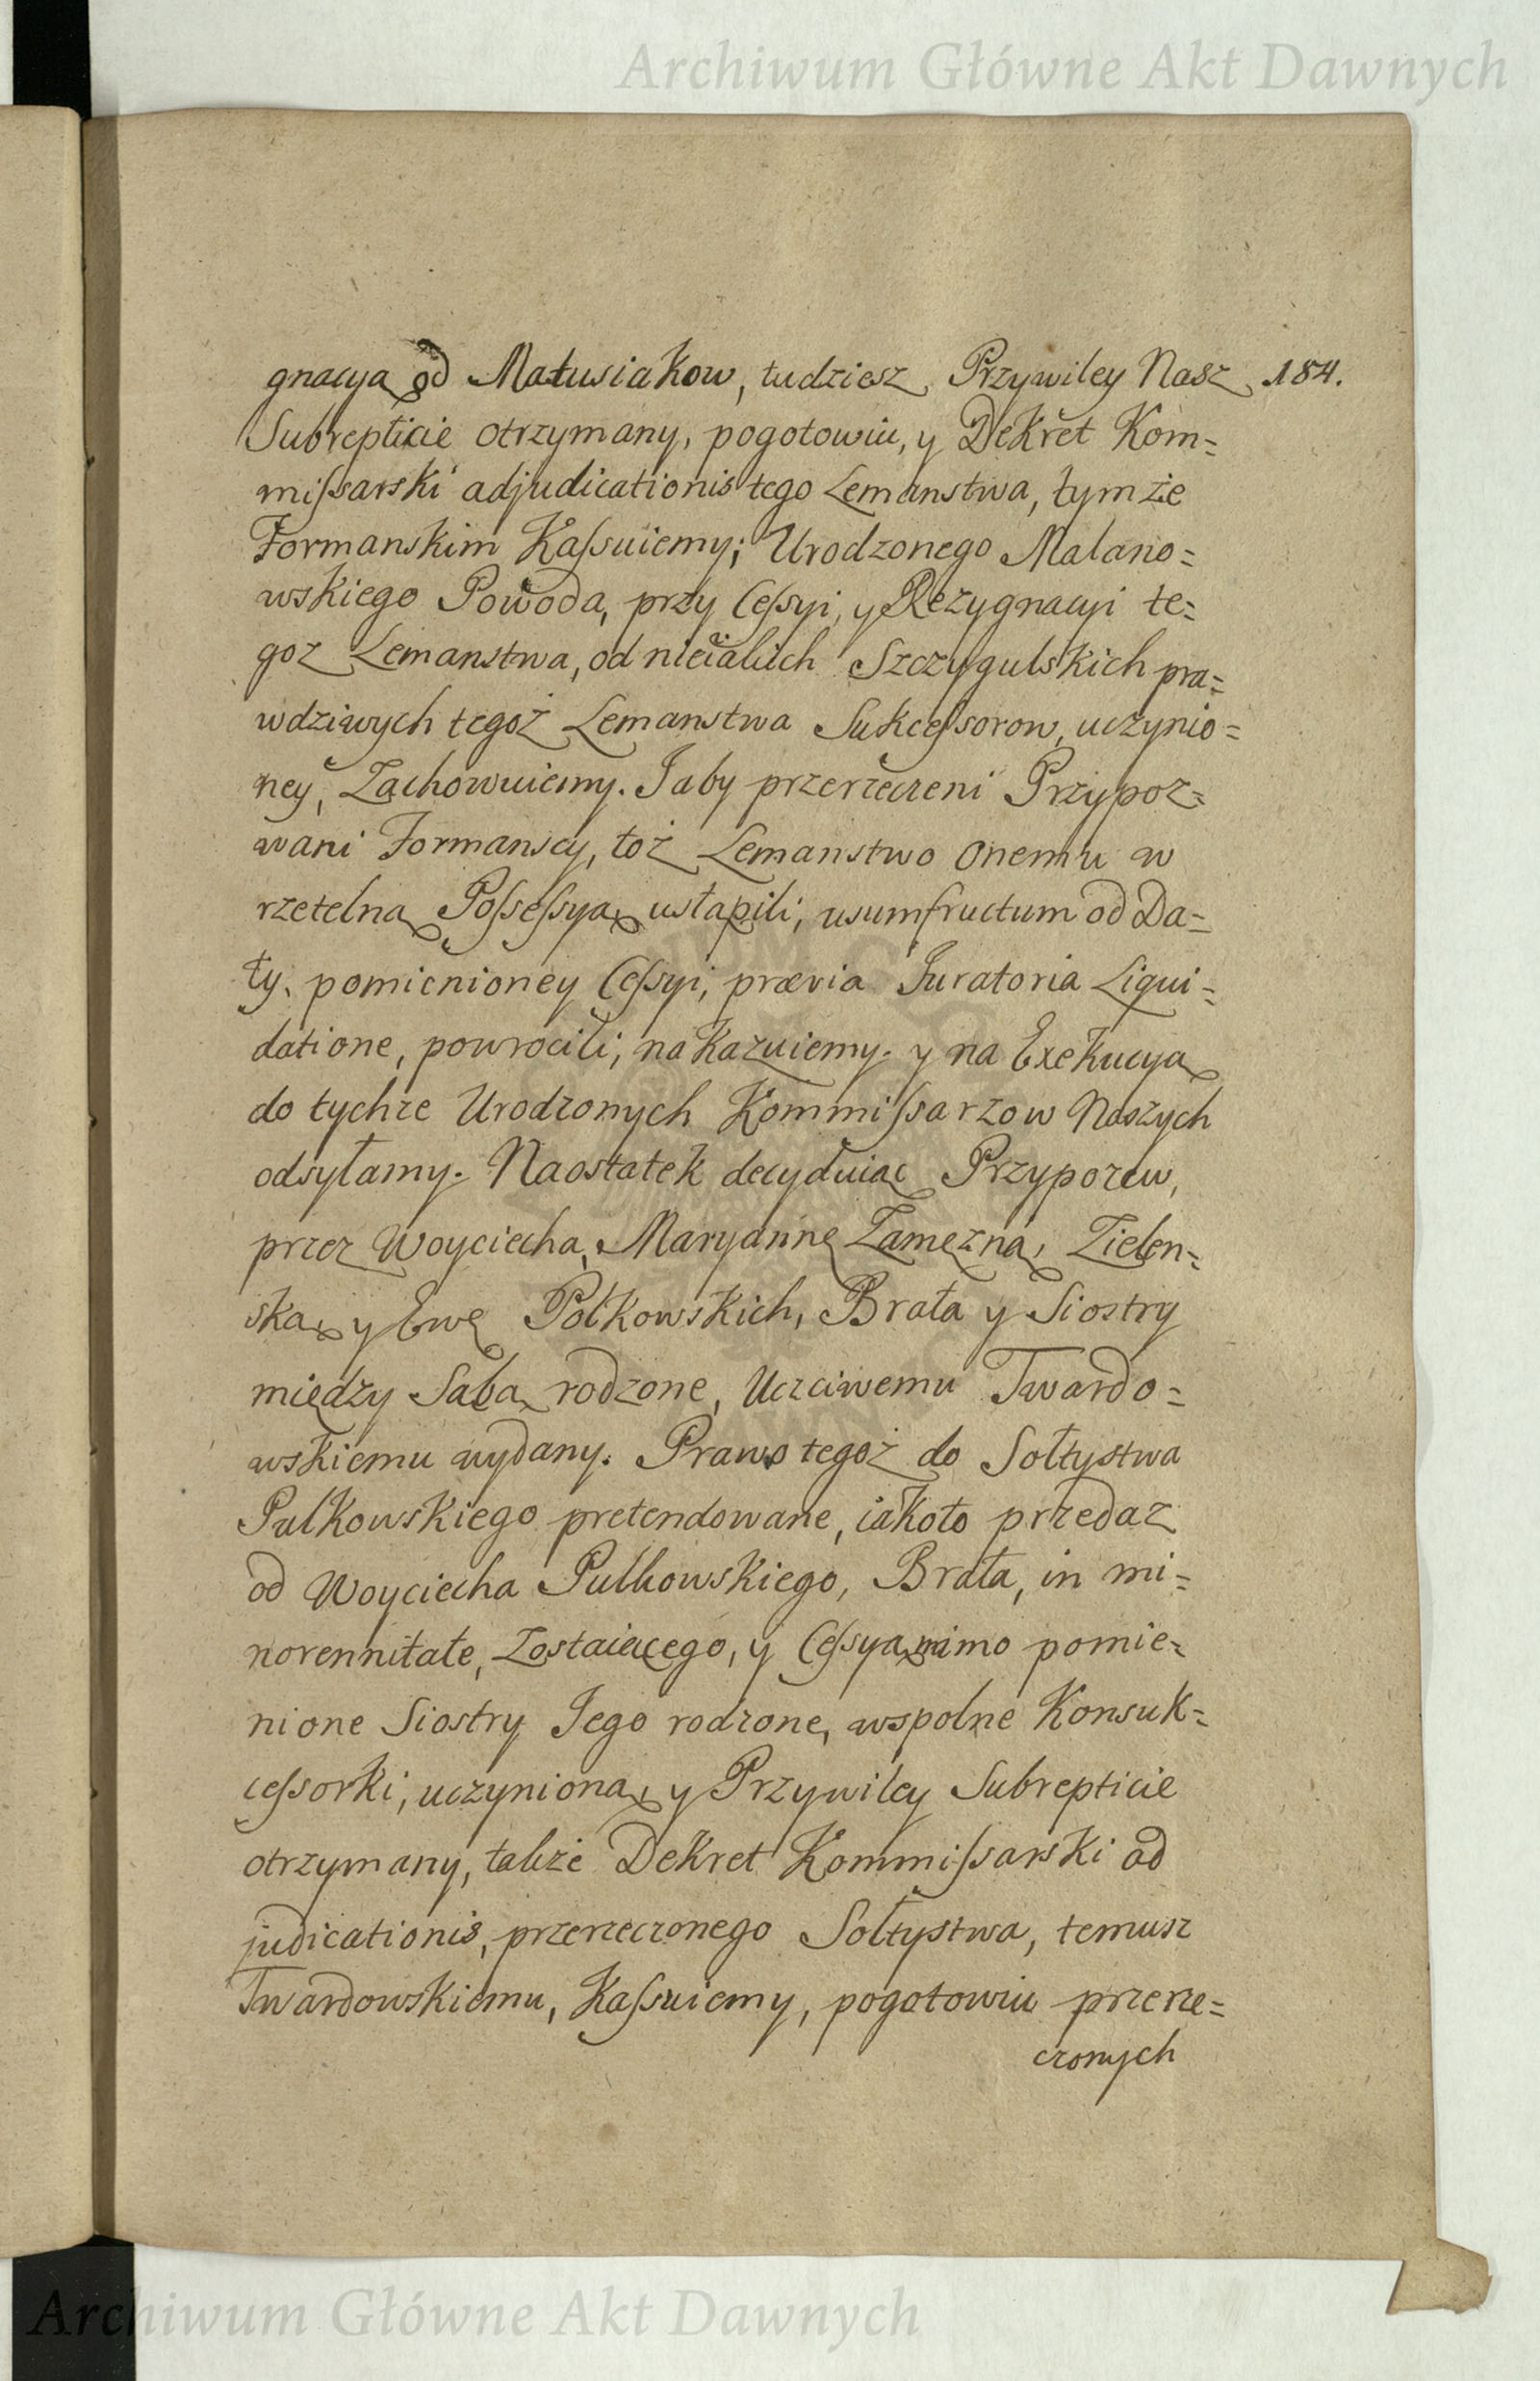 Archiwum Główne Akt Dawnych
gnacyą od Matusiakow, tudziesz Przywiley Nasz 184.
Subrepticie otrzymany, pogotowiu, y Dekret Kom=
miſsarski adjudicationis tego Lemanstwa, tymże
Formanskim Kaſsuiemy; Urodzonego Malano=
wskiego Powoda, przy Ceſsyi, y Rezygnacyi te=
goz Lemanstwa, od Szczygulskich pra=
wdziwych tegoż Lemanstwa Sukceſsorow, uczynio=
ney, Zachowuiemy. Jaby przerzeczeni Przypoz=
wani Formanscy, toż Lemanstwo onemu w
rzetelną Poſseſsyą ustąpili, usumfructum od Da=
ty, pomienioney Ceſsyi, prævia Juratoria Liqui=
datione, powrocili, nakazuiemy. y na Exekucyą
do tychze Urodzonych Kommiſsarzow Naszych
odsyłamy. Naostatek decyduiąc Przypozew,
przez Woyciecha, Maryannę Zamęzną, Zielen=
ską, y Ewę Połkowskich, Brata y Siostry
między Sabą rodzone, Uczciwemu Twardo=
wskiemu wydany. Prawo tegoż do Sołtystwa
Pulkowskiego pretendowane, iakoto przedaz
od Woyciecha Pulkowskiego, Brata, in mi=
norennitate, Zostaiącego, y Ceſsyą mimo pomie=
nione Siostry Jego rodzone, wspolne Konsuk=
ceſsorki, uczynioną, y Przywiley Subrepticie
otrzymany, także Dekret Kommiſsarski ad
judicationis, przerzeczonego Sołtystwa, temusz
Twardowskiemu, Kaſsuiemy, pogotowiu przerze=
czonych
Archiwum Główne Akt Dawnych